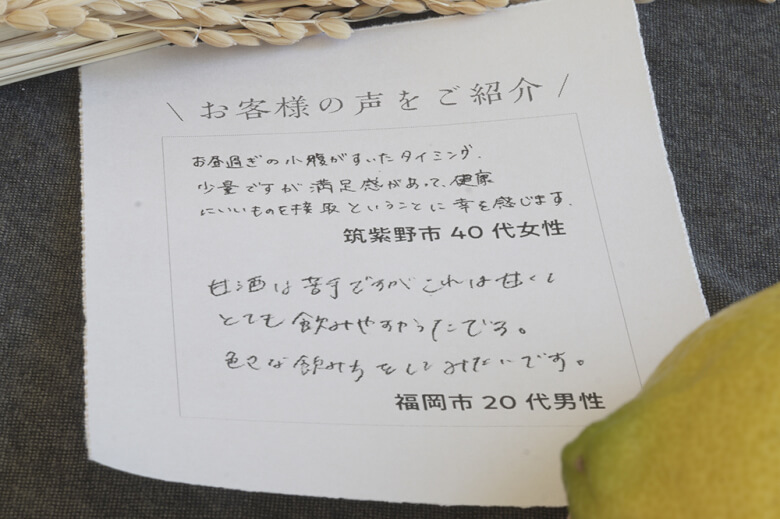 \ お客様の声をご紹介 /
お昼過ぎの小腹がすいたタイミング.
少量ですが満足感があって、健康
にいいものを接取ということに幸を感じます.
筑紫野市 40 代女性
甘酒は苦手ですがこれは甘くて
とても飲みやすかったです。
色々な飲み方をしてみたいです。
福岡市 20 代男性